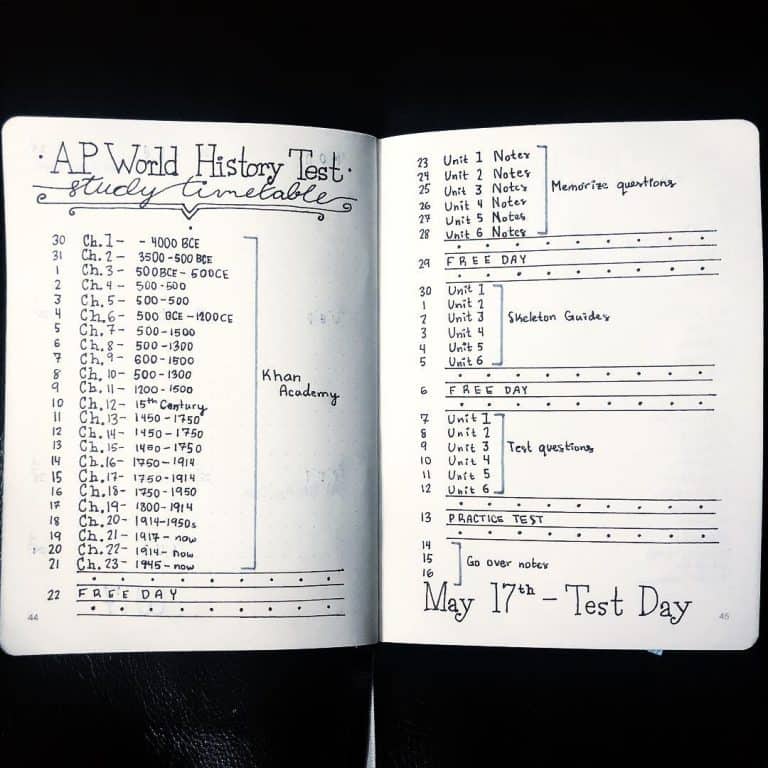 ·AP World History Test·
study timetable
30 Ch. 1 - - 4000 BCE
31 Ch. 2 - 3500-500 BCE
1 Ch. 3 - 500 BCE - 500 CE
2 Ch. 4 - 500-500
3 Ch. 5 - 500-500
4 Ch. 6 - 500 BCE - 1200 CE
5 Ch. 7 - 500-1500
6 Ch. 8 - 500-1300
7 Ch. 9 - 600-1500
8 Ch. 10 - 500-1300
9 Ch. 11 - 1200-1500
10 Ch. 12 - 15th Century
11 Ch. 13 - 1450-1750
12 Ch. 14 - 1450-1750
13 Ch. 15 - 1450-1750
14 Ch. 16 - 1750-1914
15 Ch. 17 - 1750-1914
16 Ch. 18 - 1750-1950
17 Ch. 19 - 1800-1914
18 Ch. 20 - 1914-1950s
19 Ch. 21 - 1917-now
20 Ch. 22 - 1914-now
21 Ch. 23 - 1945-now
Khan
Academy
22 FREE DAY
44
23 Unit 1 Notes
24 Unit 2 Notes
25 Unit 3 Notes
26 Unit 4 Notes
27 Unit 5 Notes
28 Unit 6 Notes
Memorize questions
29 FREE DAY
30 Unit 1
1 Unit 2
2 Unit 3
3 Unit 4
4 Unit 5
5 Unit 6
Skeleton Guides
6 FREE DAY
7 Unit 1
8 Unit 2
9 Unit 3
10 Unit 4
11 Unit 5
12 Unit 6
Test questions
13 PRACTICE TEST
14
15
16
Go over notes
May 17th - Test Day
45